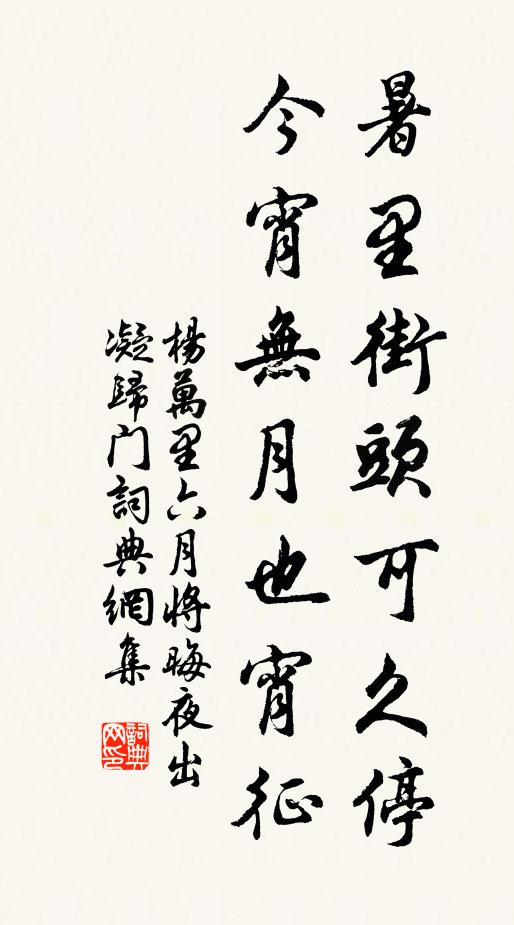 暑里街頭可久停
今宵無月也宵征
楊萬里六月將晦夜出
凝歸门詞典網集
詞典网印